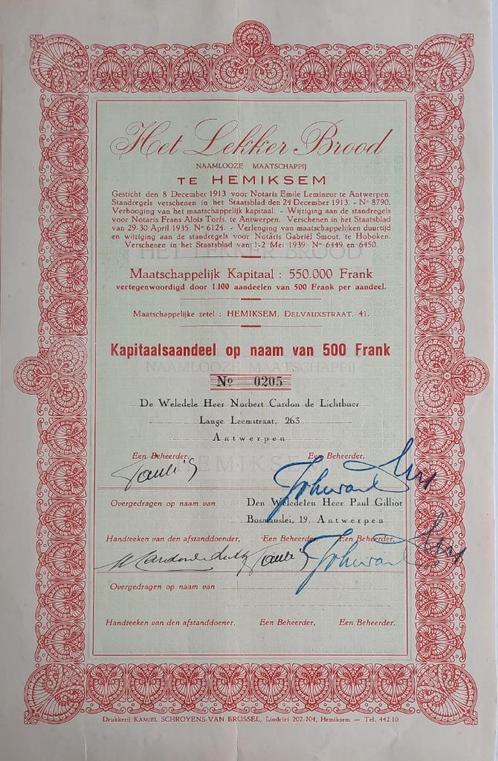 Het Lekker Brood
NAAMLOOZE MAATSCHAPPIJ
TE HEMIKSEM
Gesticht den 8 December 1913 voor Notaris Emile Lemineur te Antwerpen.
Standregels verschenen in het Staatsblad den 24 December 1913 - No 8790.
Verhooging van het maatschappelijk kapitaal. - Wijziging aan de standregels
voor Notaris Frans Alois Torfs te Antwerpen. Verschenen in het Staatsblad
van 29-30 April 1935. No 6124. - Verlenging van maatschappelijken duurtijd
en wijziging aan de standregels voor Notaris Gabriël Smout, te Hoboken.
Verschenen in het Staatsblad van 1-2 Mei 1939. No 6449 en 6450.
Maatschappelijk Kapitaal : 550.000 Frank
vertegenwoordigd door 1.100 aandeelen van 500 Frank per aandeel.
Maatschappelijke zetel : HEMIKSEM, DELVAUXSTRAAT, 41.
Kapitaalsaandeel op naam van 500 Frank
No 0205
De Weledele Heer Norbert Cardon de Lichtbuer
Lange Leemstraat, 263
Antwerpen
Een Beheerder. Een Beheerder.
Overgedragen op naam van Den Weledelen Heer Paul Gilliot
Bosmanslei, 19, Antwerpen
Handteeken van den afstanddoender, Een Beheerder, Een Beheerder,
Overgedragen op naam van
Handteeken van den afstanddoener, Een Beheerder, Een Beheerder,
Drukkerij KAMIEL SCHROYENS-VAN BRUSSEL, Lindelei 202-204, Hemiksem — Tel. 442.10